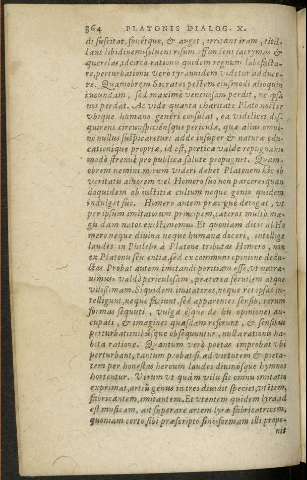 364 PLATONIS DIALOG. X.
di suscitat, fovetque, & auget, irritant iram, titil-
lant libidinem: solvunt risum: effundunt lacrymas &
querelas, idcirco rationis quidem regnum labefacta-
re, perturbationis vero tyrannidem videtur adduce-
re. Quamobrem Socrates pestem ejusmodi alioquin
jucundam, sed maxime venenosam perdat, ne ipsa
nos perdat. At vide quanta charitate Plato noster
ubique humano generi consulat, ea videlicet dili-
genter circumspiciens pericula, quae alius omni-
no nullus suspicaretur: adde insuper & naturae edu-
cationique propriae, id est, poeticae valde repugnans
modo strenue pro publica salute propugnet. Quam-
obrem nemini mirum videri debet Platonem hic ob
veritatis amorem vel Homero suo non parcere: quan-
doquidem ob justitiae cultum neque genio quidem
indulget suo. Homero autem praecipue derogat, ut
per ipsum imitatorum principem, caeteros multo ma-
gis damnatos existimemus. Et quoniam dicit illi Ho-
mero neque divina neque humana docere, intellige
laudes in Philebo à Platone tributas Homero, non
ex Platonis sententia, sed ex communi opinione dedu-
ctas. Probat autem imitandi peritiam esse, ut natura
vimus valde periculosam, praeterea levitatem atque
vilissimam. Siquidem imitatores neque res ipsas in-
telligunt, neque faciunt, sed apparentes sensui, rerum
formas sequuti, vulgi quoque de his opiniones au-
cupati, & imagines quasdam referunt, & sensibus
perturbationibusque obsequuntur, nulla rationis ha-
bita ratione. Quantum vero poetae improbat ubi
perturbant, tantum probat si ad virtutem & pieta-
tem per honestas heroum laudes divinasque hymnos
hortentur. Verum ut quam vilis sit omnis imitatio
exprimat, artium genus in tres dividit species, utentem,
fabricantem, imitantem. Et utentem quidem lyra, id
est musicam, ait superare artem lyrae fabricatricem,
quoniam certo sibi praescripto fine formam illi propo-
nit